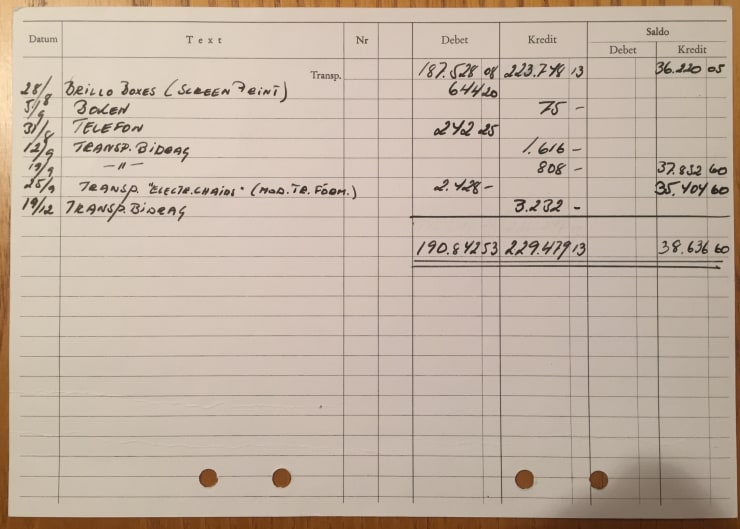 Datum Text Nr Debet Kredit Saldo
Debet Kredit
Transp. 187.528 08 223.748 13 36.220 05
28/7 BRILLO BOXES (SCREEN PRINT) 644 20
5/9 BOKEN 75 –
31/8 TELEFON 242 25
12/9 TRANSP. BIDRAG 1.616 –
19/9 –"– 808 – 37.832 60
25/9 TRANSP. "ELECTR. CHAIRS" (MOD. TR. FÖRM.) 2.428 – 35.404 60
19/12 TRANSP. BIDRAG 3.232 –
190.842 53 229.479 13 38.636 60